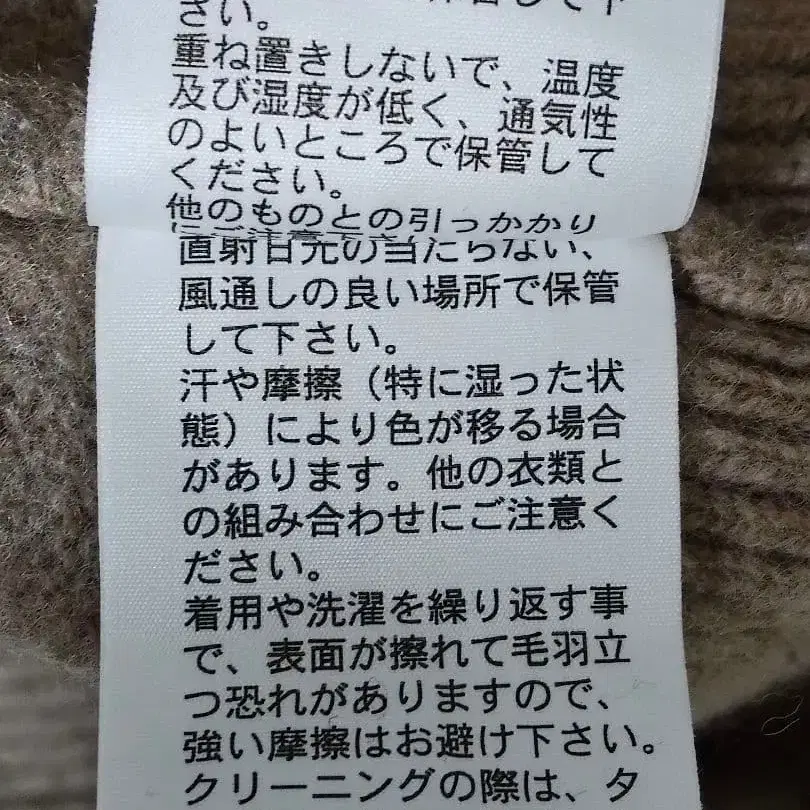 さい。
重ね置きしないで、温度
及び湿度が低く、通気性
のよいところで保管して
ください。
他のものとの引っかかり
直射日光の当たらない、
風通しの良い場所で保管
して下さい。
汗や摩擦（特に湿った状
態）により色が移る場合
があります。他の衣類と
の組み合わせにご注意く
ださい。
着用や洗濯を繰り返す事
で、表面が擦れて毛羽立
つ恐れがありますので、
強い摩擦はお避け下さい。
クリーニングの際は、タ